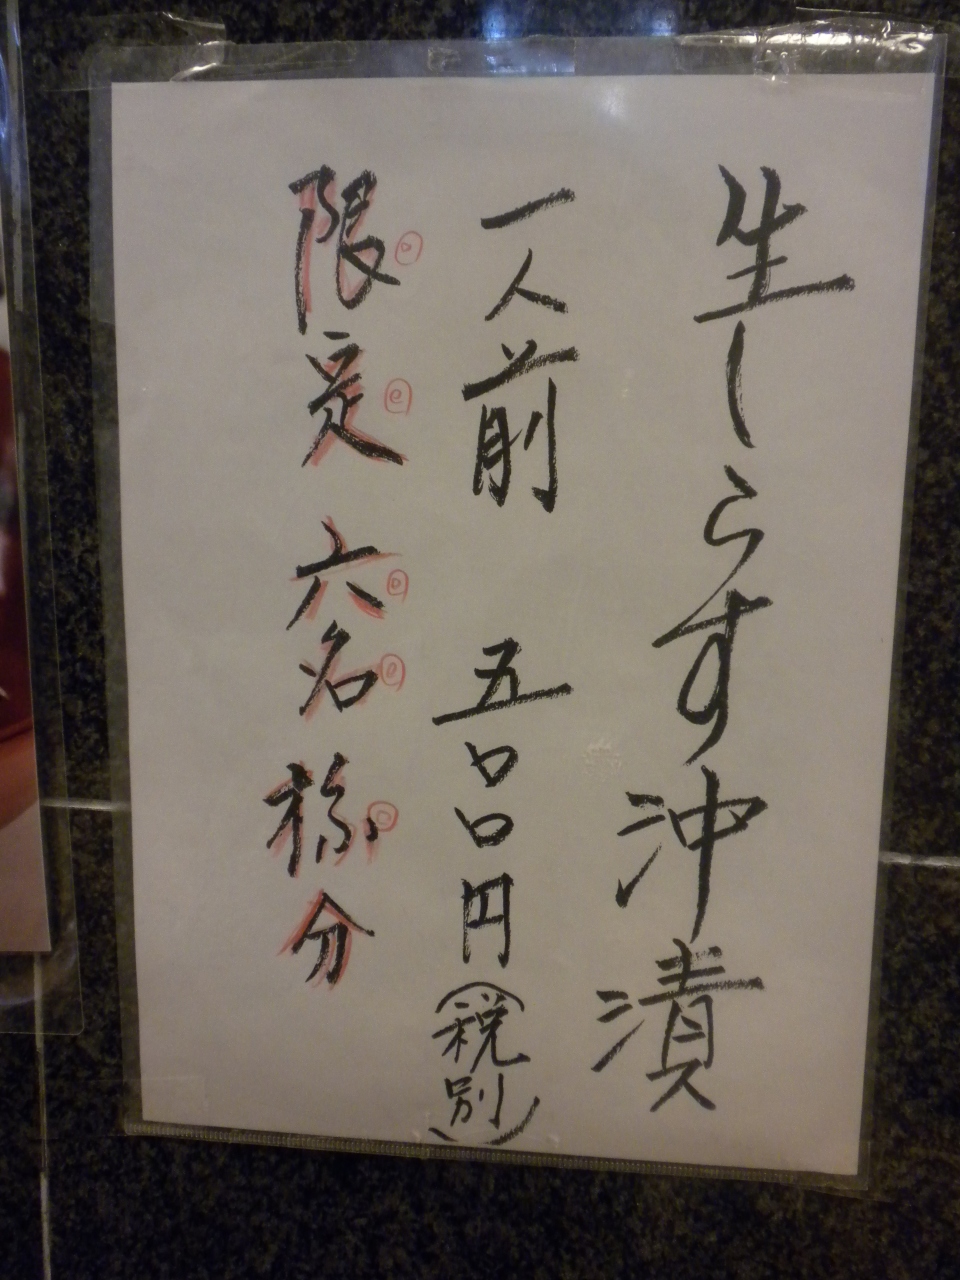 生しらす沖漬
一人前 五〇〇円(税別)
限定 六名様分